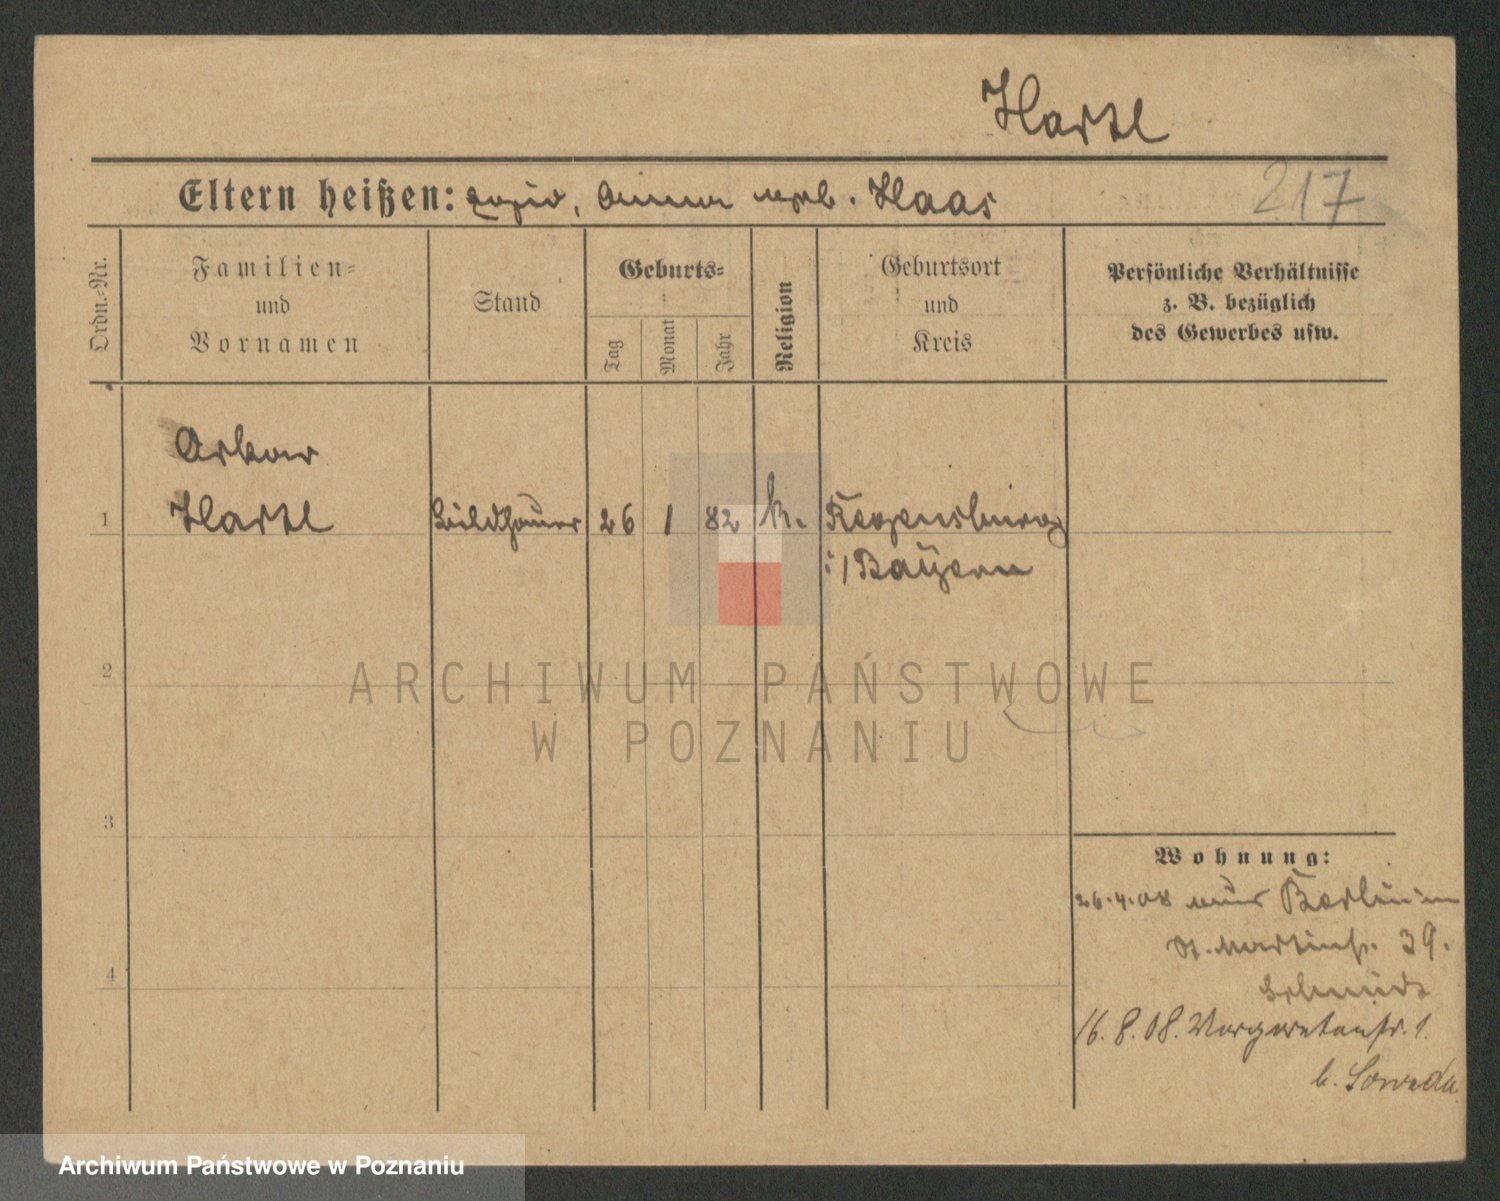 Hartl
Eltern heißen: Anna geb. Haas
217
Ordn.-Nr.
Familien-
und
Vornamen
Stand
Geburts-
Tag
Monat
Jahr
Religion
Geburtsort
und
Kreis
Persönliche Verhältnisse
z. B. bezüglich
des Gewerbes usw.
1
Hartl Bildhauer 26 1 82 k. Regensburg
i/Bayern
2
3
4
Wohnung:
26.4.08 aus Berlin in
St. Martinstr. 39.
Schmidt
16.8.08. Margaretenstr. 1.
b.
ARCHIWUM PAŃSTWOWE
W POZNANIU
Archiwum Państwowe w Poznaniu